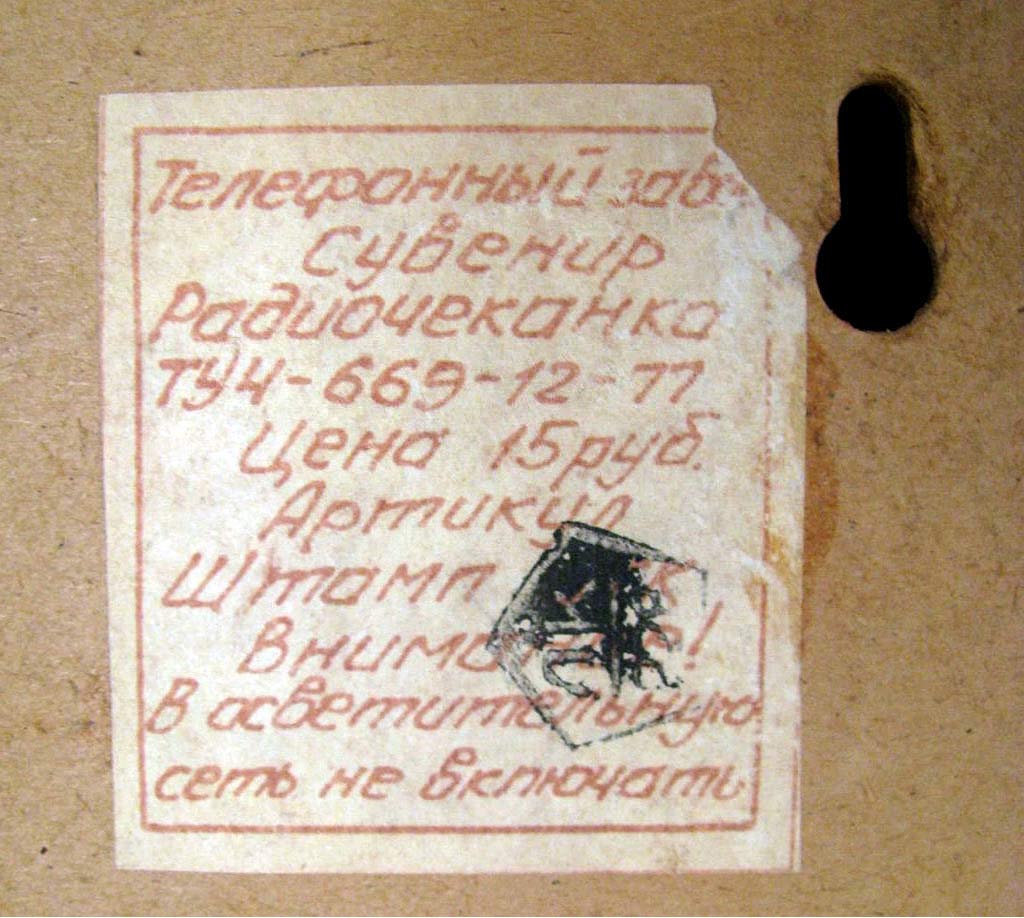 Телефонный
Сувенир
Радиочеканка
ТУ4-669-12-77
Цена 15руб.
Артикул
Штамп
Внимание!
В осветительную
сеть не включать